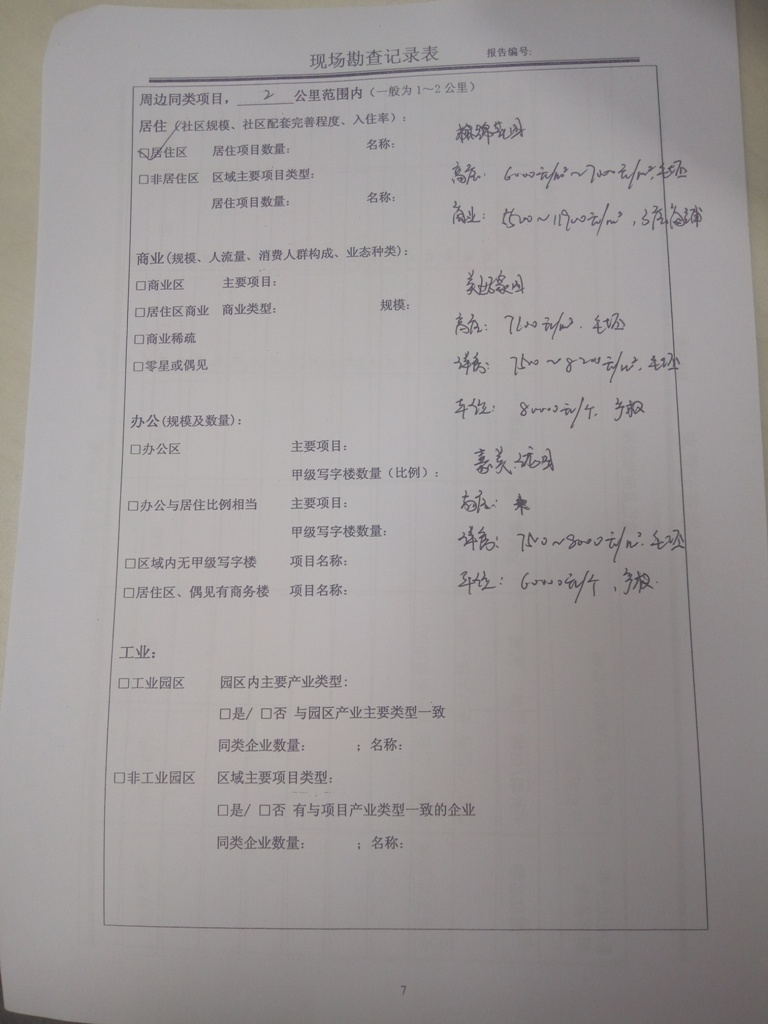 现场勘查记录表 报告编号:
周边同类项目, 2 公里范围内(一般为1~2公里)
居住(社区规模、社区配套完善程度、入住率):
☑居住区 居住项目数量: 名称:
□非居住区 区域主要项目类型: 高层: 6000元/m²~7000元/m².毛坯
居住项目数量: 名称: 商业: 5500~11900元/m²,
商业(规模、人流量、消费人群构成、业态种类):
□商业区 主要项目:
□居住区商业 商业类型: 规模:
□商业稀疏 高层: 7100元/m². 毛坯
□零星或偶见 洋房: 7500~8200元/m².毛坯
车位: 80000元/个. 产权
办公(规模及数量):
□办公区 主要项目:
甲级写字楼数量(比例):
□办公与居住比例相当 主要项目: 高层:
甲级写字楼数量: 洋房: 7500~8000元/m².毛坯
□区域内无甲级写字楼 项目名称:
□居住区、偶见有商务楼 项目名称: 车位: 60000元/个, 产权.
工业:
□工业园区 园区内主要产业类型:
□是/ □否 与园区产业主要类型一致
同类企业数量: ; 名称:
□非工业园区 区域主要项目类型:
□是/ □否 有与项目产业类型一致的企业
同类企业数量: ; 名称:
7